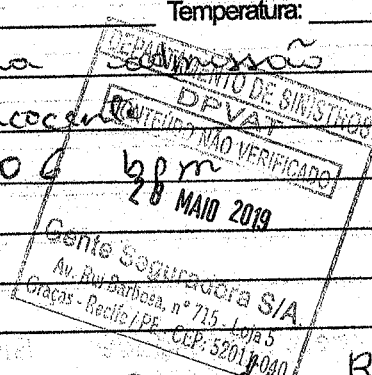 Temperatura:
na admissão
DEPARTAMENTO DE SINISTROS
DPVAT
CONTEÚDO NÃO VERIFICADO
bpm
28 MAIO 2019
Gente Seguradora S/A.
Av. Rui Barbosa, nº 715 - Loja 5
Graças - Recife / PE - CEP: 52011-040
R